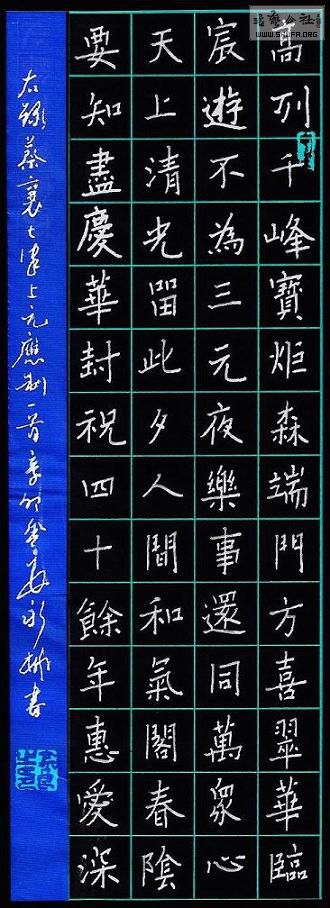 高列千峰寶炬森端門方喜翠華臨
宸遊不為三元夜樂事還同萬衆心
天上清光留此夕人間和氣閣春陰
要知盡慶華封祝四十餘年惠愛深
右錄蔡襄七律上元應制一首辛卯
書
WWW.SHUFA.ORG